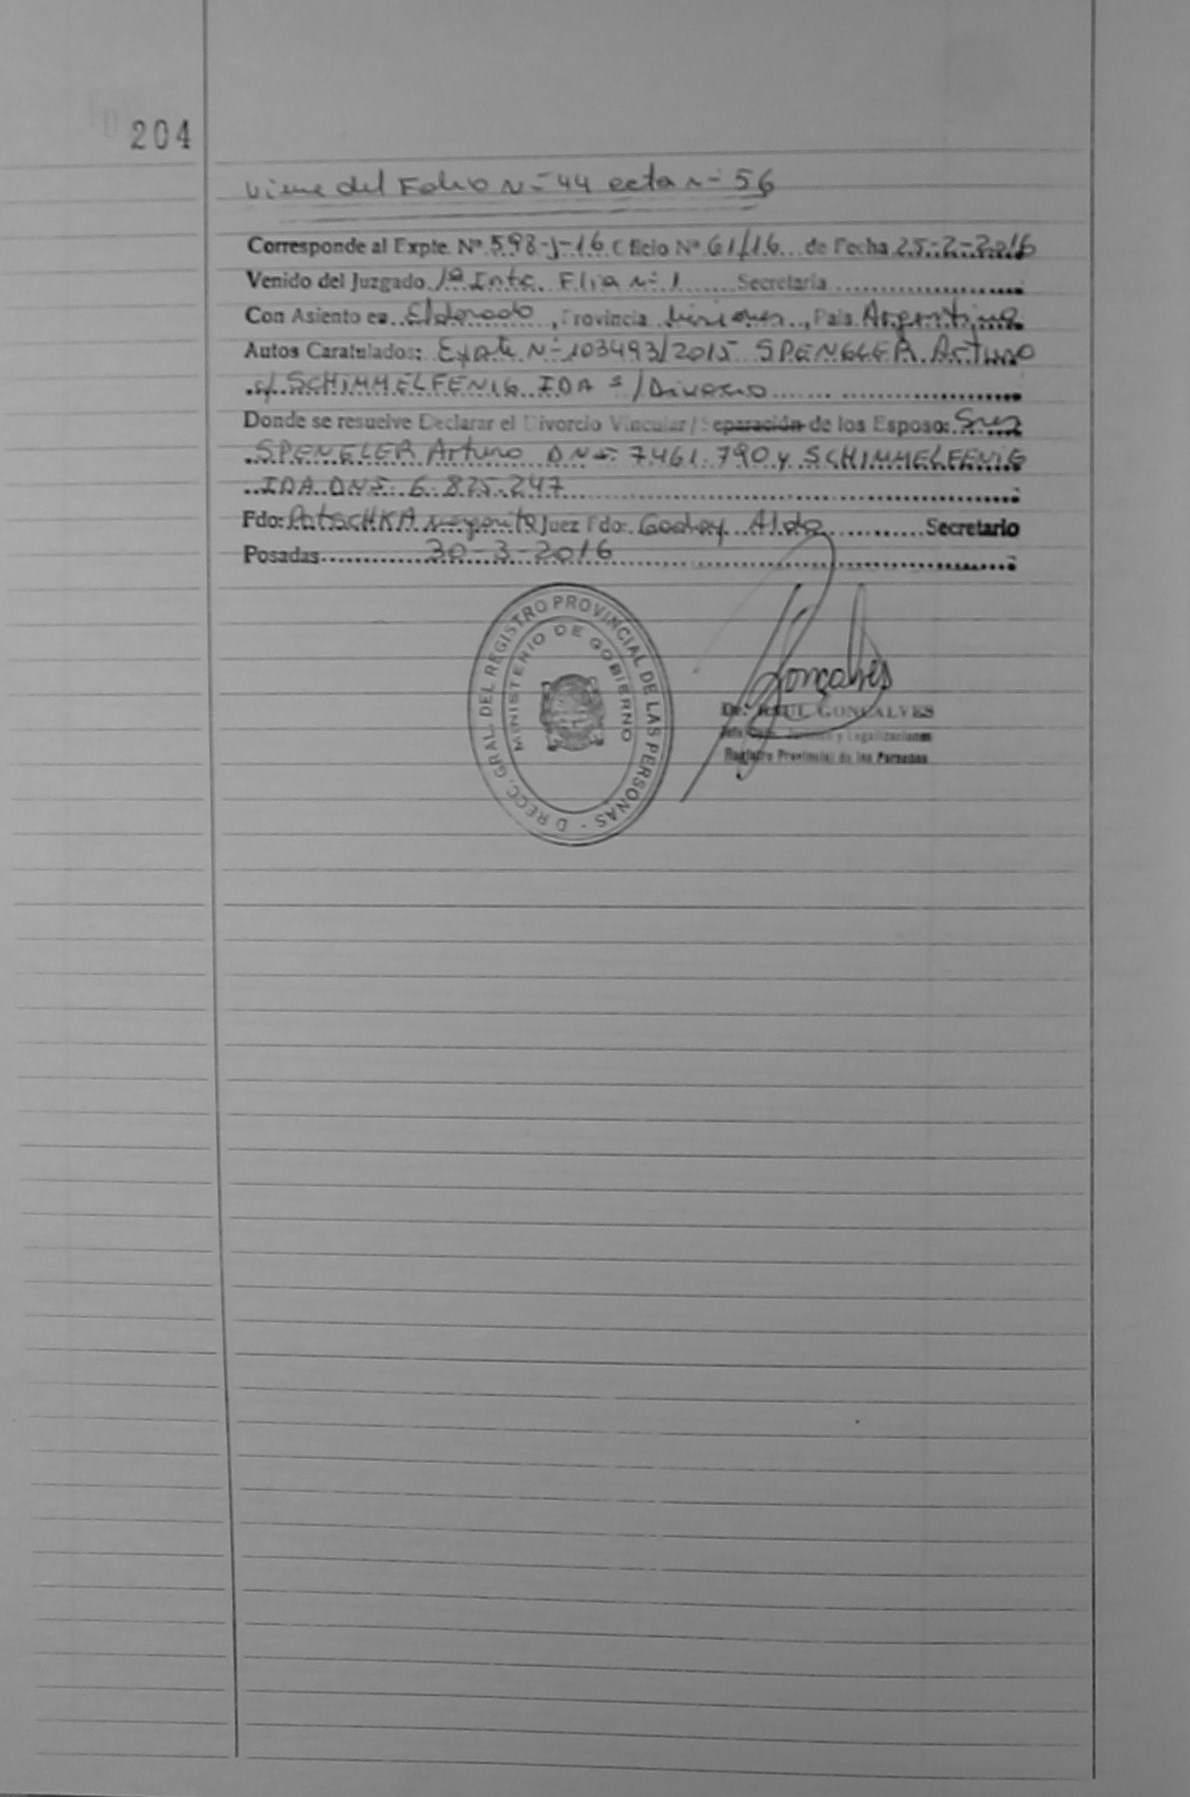 204
Viene del Folio Nº 44 acta Nº 56
Corresponde al Expte. Nº 598-J-16 Oficio Nº 61/16 de Fecha 25-2-2016
Venido del Juzgado 1ª Inta. Flia Nº 1 Secretaría
Con Asiento en Eldorado, Provincia Misiones, País Argentina
Autos Caratulados: Expte Nº 103493/2015 SPENGLER Arturo
c/ SCHIMMELFENIG IDA s/Divorcio
Donde se resuelve Declarar el Divorcio Vincular/Separación de los Esposo: Sres
SPENGLER Arturo DNI. 7.461.790 y SCHIMMELFENIG
IDA DNI. 6.825.247
Fdo: PATSCHKA Margarita Juez Fdo: Godoy Aldo Secretario
Posadas 30-3-2016
DIRECC. GRAL. DEL REGISTRO PROVINCIAL DE LAS PERSONAS -
MINISTERIO DE GOBIERNO
Gonçalves
Dr. RAUL GONCALVES
Jefe Dpto. Jurídico y Legalizaciones
Registro Provincial de las Personas